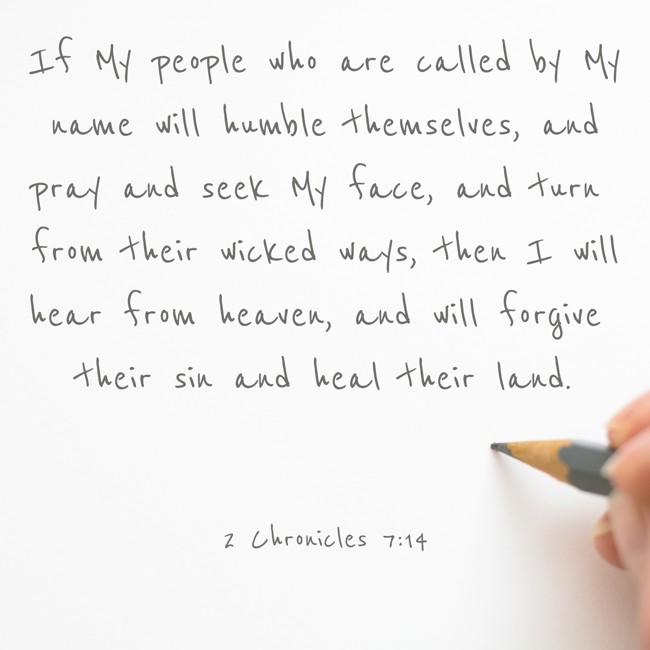 If My people who are called by My
name will humble themselves, and
pray and seek My face, and turn
from their wicked ways, then I will
hear from heaven, and will forgive
their sin and heal their land.
2 Chronicles 7:14